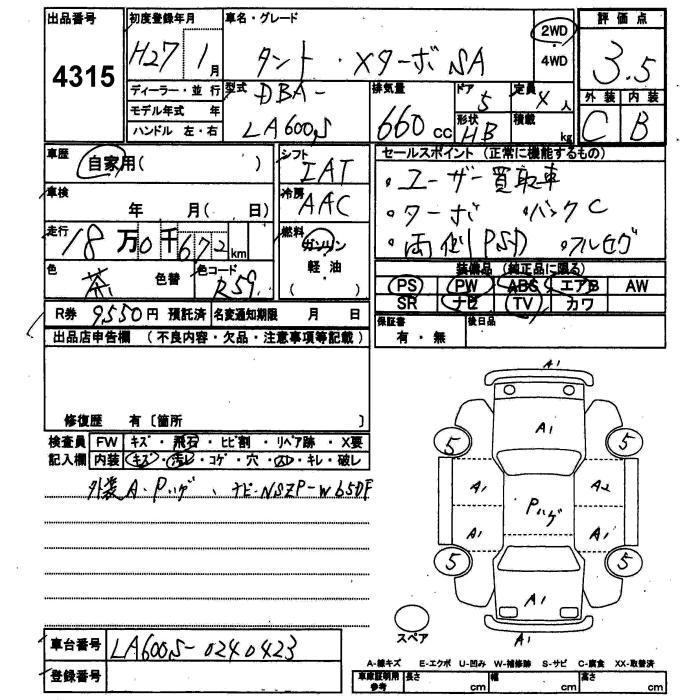 出品番号
4315
初度登録年月
H27 1月
ディーラー・並行
モデル年式 年
ハンドル 左・右
車名・グレード
タント・Xターボ SA
2WD
4WD
型式
DBA-
LA600S
排気量
660 cc
ドア 5
形状 HB
定員 4 人
積載 kg
評価点
3.5
外装 内装
C B
車歴
自家用( )
車検
年 月( 日)
走行
18万0千672km
色
茶 色替
色コード
R59
シフト
IAT
冷房
AAC
燃料
ガソリン
軽油
( )
R券 9550円 預託済 名変通知期限 月 日
セールスポイント (正常に機能するもの)
・ユーザー買取車
・ターボ ・バックC
・両側PSD ・フルセグ
装備品 (純正品に限る)
PS PW ABS エアB AW
SR ナビ TV カワ
保証書 有・無
後日品
出品店申告欄 (不良内容・欠品・注意事項等記載)
修復歴 有〔箇所 〕
検査員 FW キズ・飛石・ヒビ割・リペア跡・X要
記入欄 内装 キズ・汚レ・コゲ・穴・凹・キレ・破レ
外装A・Pハゲ、ナビ-NSZP-W65DF
A1
A1
5 5
A1 A2
Pハゲ
A1 A1
5 5
A1
A1
スペア
車台番号 LA600S-0240423
登録番号
A-線キズ E-エクボ U-凹み W-補修跡 S-サビ C-腐食 XX-取替済
車庫証明用参考 長さ cm 幅 cm 高さ cm